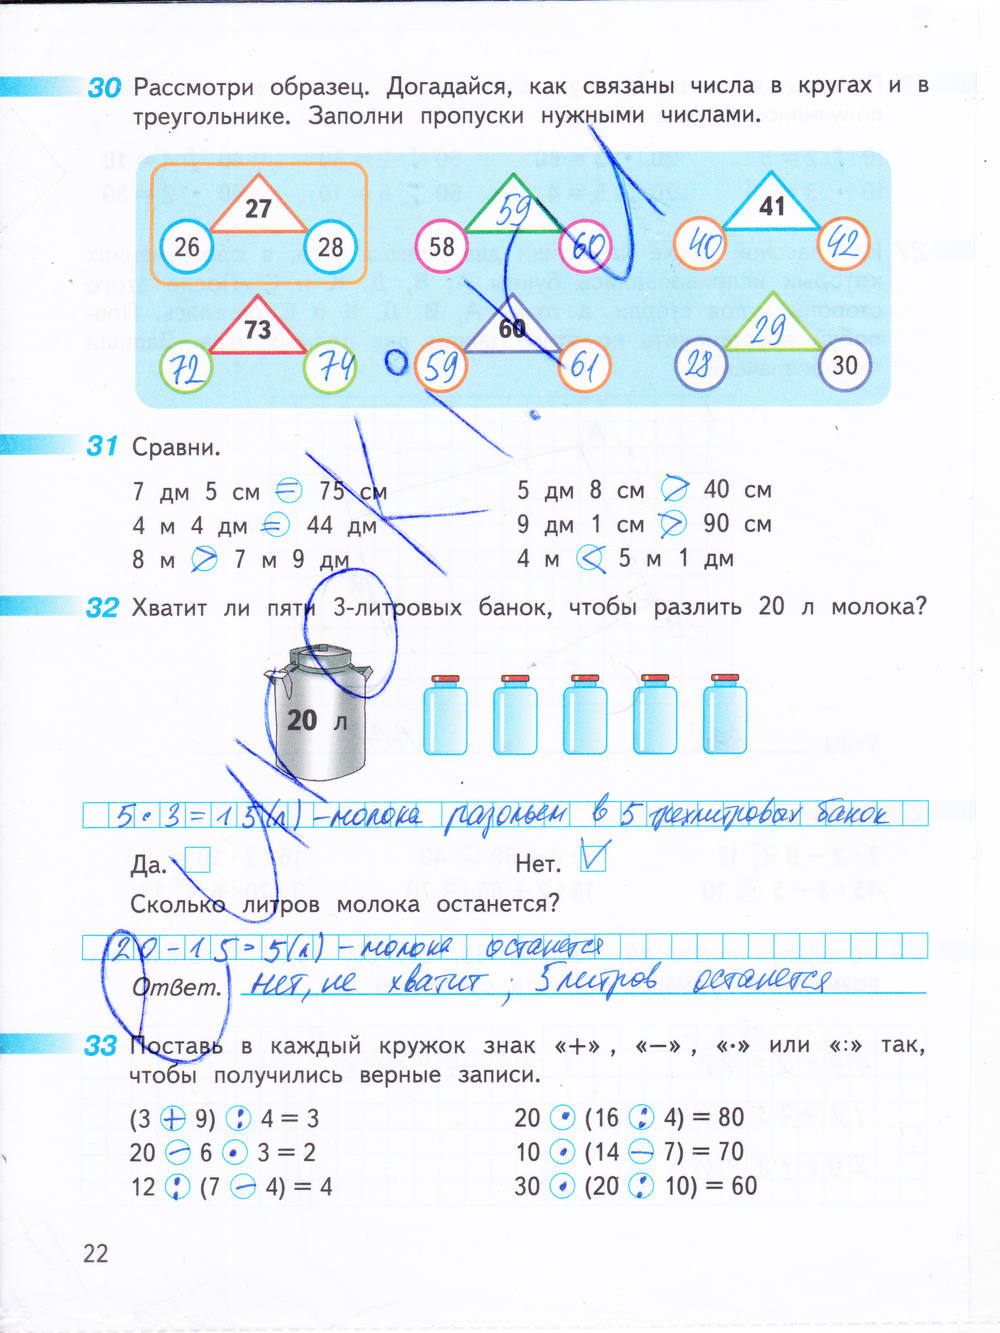 30 Рассмотри образец. Догадайся, как связаны числа в кругах и в
треугольнике. Заполни пропуски нужными числами.
27 59 41
26 28 58 60 40 42
73 60 29
72 74 59 61 28 30
31 Сравни.
7 дм 5 см = 75 см 5 дм 8 см > 40 см
4 м 4 дм = 44 дм 9 дм 1 см > 90 см
8 м > 7 м 9 дм 4 м < 5 м 1 дм
32 Хватит ли пяти 3-литровых банок, чтобы разлить 20 л молока?
20 л
5·3=15(л)-молока разольем в 5 трехлитровых банок
Да. Нет. V
Сколько литров молока останется?
20-15=5(л)-молока останется
Ответ. нет, не хватит; 5 литров останется
33 Поставь в каждый кружок знак «+», «−», «·» или «:» так,
чтобы получились верные записи.
(3 + 9) : 4 = 3 20 · (16 : 4) = 80
20 − 6 · 3 = 2 10 · (14 − 7) = 70
12 : (7 − 4) = 4 30 · (20 : 10) = 60
22